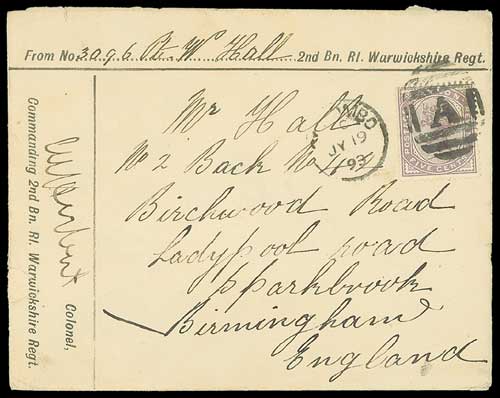 From No. 3096 Pt. Wm Hall 2nd Bn. Rl. Warwickshire Regt.
Mr Hall
No 2 Back No
Birchwood Road
Ladypool road
Sparkbrook
Birmingham
England
MBO
JY 19
93
A
FIVE CENTS
Colonel,
Commanding 2nd Bn. Rl. Warwickshire Regt.